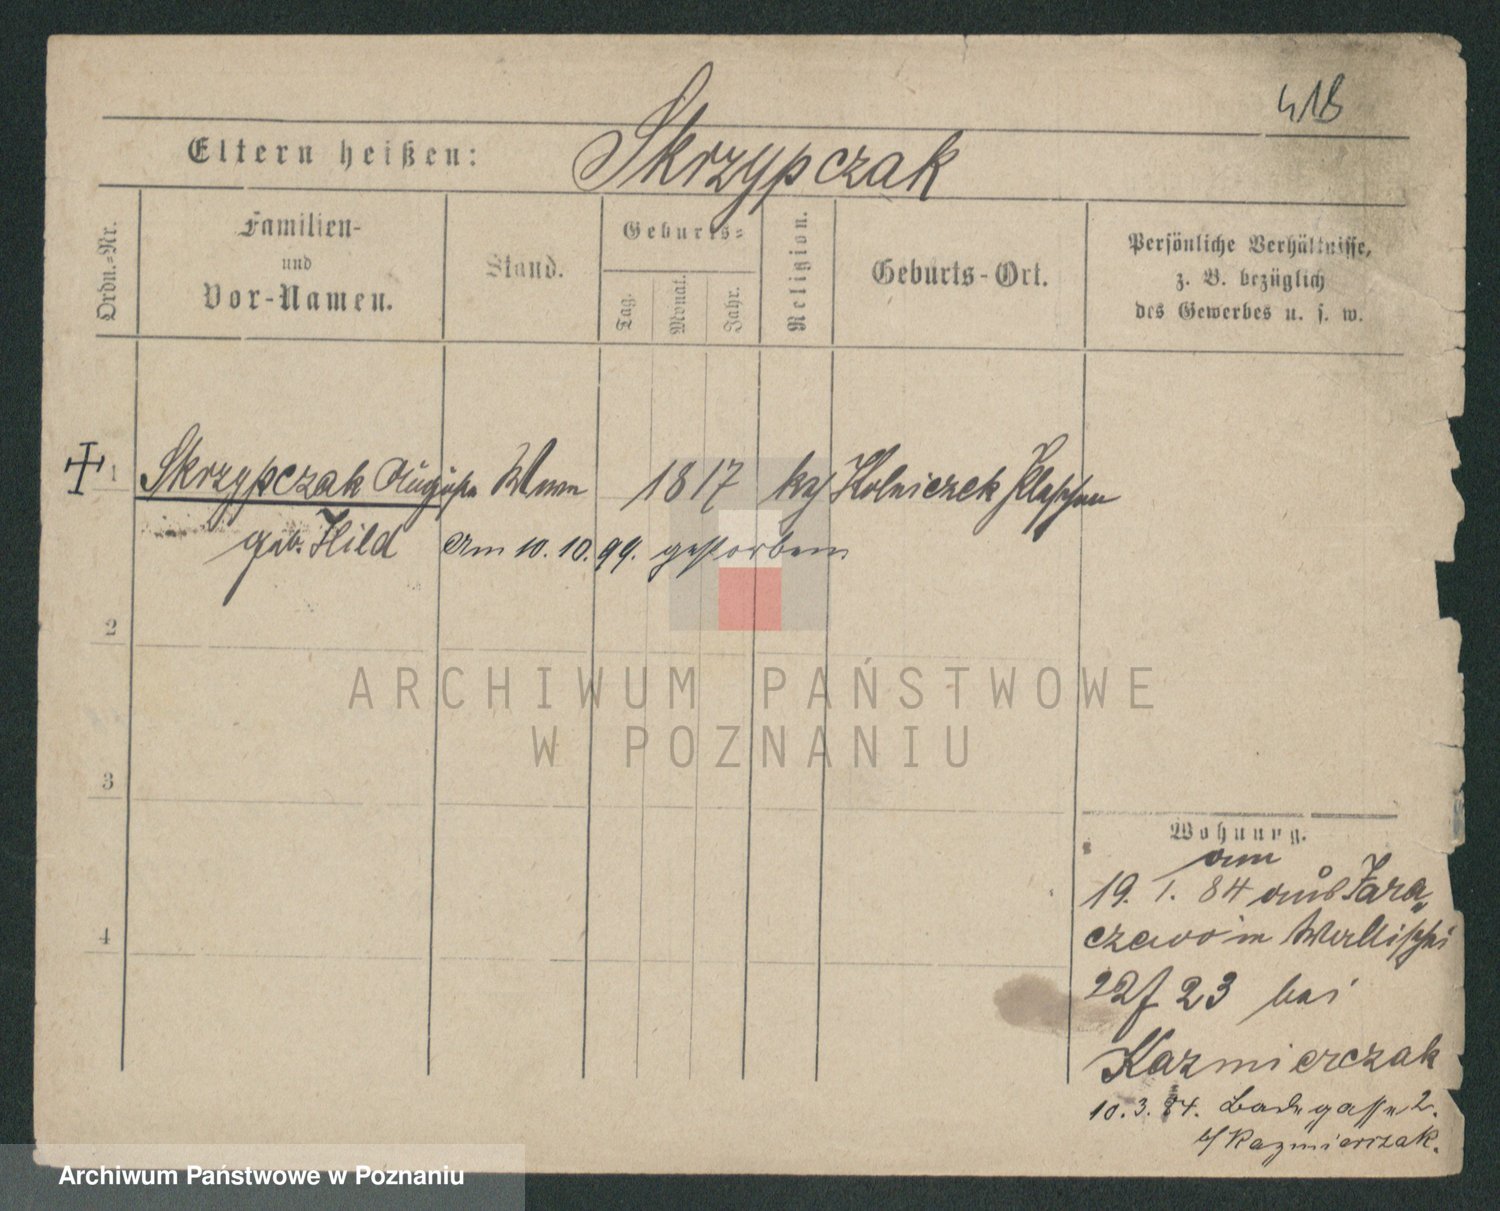 418
Eltern heißen: Skrzypczak
Ordn.-Nr.
Familien-
und
Vor-Namen.
Stand.
Geburts-
Tag.
Monat.
Jahr.
Religion.
Geburts-Ort.
Persönliche Verhältnisse,
z. B. bezüglich
des Gewerbes u. s. w.
1 Skrzypczak 1817 Kolniczek Pleschen
geb. Hild am 10. 10. 99. gestorben
2
3
4
Wohnung.
am
19. 1. 84 aus Jara
czewo in Wallischei
22/23 bei
Kazmierczak
10. 3. 84. Badegasse 2.
b/ Kazmierczak.
ARCHIWUM PAŃSTWOWE
W POZNANIU
Archiwum Państwowe w Poznaniu